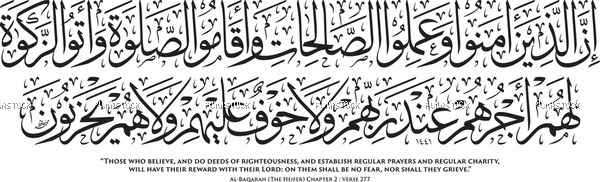 إن الذين امنوا وعملوا الصالحات وأقاموا الصلوة وأتوا الزكوة
لهم أجرهم عند ربهم ولا خوف عليهم ولا هم يحزنون
١٤٤١
“Those who believe, and do deeds of righteousness, and establish regular prayers and regular charity,
will have their reward with their Lord: on them shall be no fear, nor shall they grieve.”
Al-Baqarah (The Heifer) Chapter 2 : Verse 277